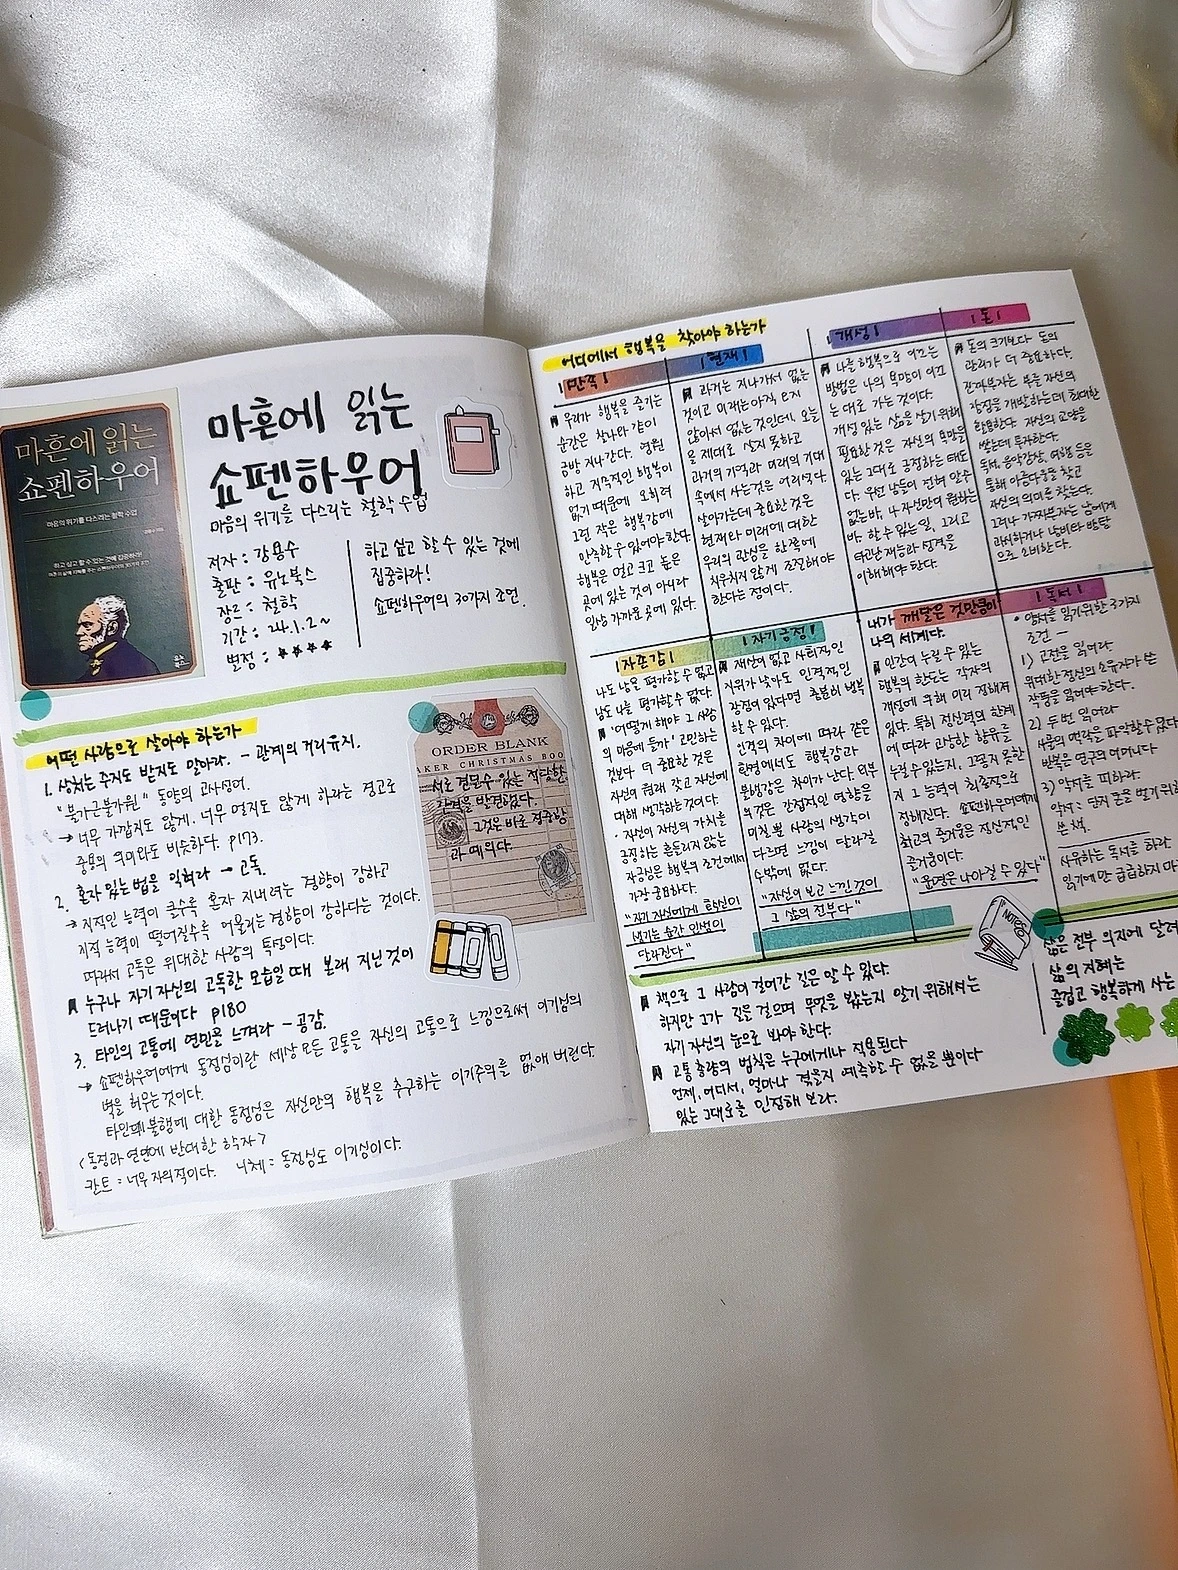 마흔에 읽는
쇼펜하우어
마음의 위기를 다스리는 철학 수업
마흔에 읽는
쇼펜하우어
마음의 위기를 다스리는 철학 수업
저자 : 강용수
출판 : 유노북스
장르 : 철학
기간 : 24.1.2~
별점 : ★★★★
하고 싶고 할 수 있는 것에
집중하라!
쇼펜하우어의 30가지 조언.
어떤 사람으로 살아야 하는가
1. 상처는 주지도 받지도 말아라. - 관계의 거리유지.
"불가근불가원" 동양의 고사성어.
→ 너무 가깝지도 않게. 너무 멀지도 않게 하라는 경고로
중용의 의미와도 비슷하다. p173.
2. 혼자 있는 법을 익혀라 → 고독.
→ 지적인 능력이 클수록 혼자 지내려는 경향이 강하고
지적 능력이 떨어질수록 어울리는 경향이 강하다는 것이다.
따라서 고독은 위대한 사람의 특성이다.
누구나 자기 자신의 고독한 모습일 때 본래 지닌 것이
드러나기 때문이다 p180
3. 타인의 고통에 연민을 느껴라 - 공감.
→ 쇼펜하우어에게 동정심이란 세상 모든 고통을 자신의 고통으로 느낌으로써 이기심의
벽을 허무는 것이다.
타인의 불행에 대한 동정심은 자신만의 행복을 추구하는 이기주의를 없애 버린다.
<동정과 연민에 반대한 학자>
칸트 : 너무 자의적이다. 니체 : 동정심도 이기심이다.
ORDER BLANK
AKER CHRISTMAS BOO
서로 견딜 수 있는 적당한
간격을 발견했다.
그것은 바로 정중함
과 예의다.
어디에서 행복을 찾아야 하는가
만족
우리가 행복을 즐기는
순간은 찰나와 같이
금방 지나간다. 영원
하고 지속적인 행복이
없기 때문에 오히려
그런 작은 행복감에
만족할 수 있어야 한다
행복은 멀고 크고 높은
곳에 있는 것이 아니라
일상 가까운 곳에 있다.
현재
과거는 지나가서 없는
것이고 미래는 아직 오지
않아서 없는 것인데, 오늘
을 제대로 살지 못하고
과거의 기억과 미래의 기대
속에서 사는 것은 어리석다.
살아가는데 중요한 것은
현재와 미래에 대한
우리의 관심을 한쪽에
치우치지 않게 조절해야
한다는 점이다.
개성
나를 행복으로 이끄는
방법은 나의 욕망이 이끄
는 대로 가는 것이다.
개성 있는 삶을 살기 위해
필요한 것은 자신의 욕망을
있는 그대로 긍정하는 태도
다. 우선 남들이 전혀 알 수
없는 바, 나 자신만이 원하는
바. 할 수 있는 일, 그리고
타고난 재능과 성격을
이해해야 한다.
돈
돈의 크기보다 돈의
관리가 더 중요하다.
진짜부자는 부를 자신의
장점을 개발하는데 최대한
활용한다. 자신의 교양을
쌓는데 투자한다.
독서, 음악감상, 여행 등을
통해 아름다움을 찾고
자신의 의미를 찾는다.
그러나 가짜부자는 남에게
과시하거나 낭비와 방탕
으로 소비한다.
자존감
나도 남을 평가할 수 없고
남도 나를 평가할 수 없다.
'어떻게 해야 그 사람
의 마음에 들까' 고민하는
것보다 더 중요한 것은
자신의 원래 갖고 자신에
대해 생각하는 것이다.
· 자신이 자신의 가치를
긍정하는 흔들리지 않는
자긍심은 행복의 조건에서
가장 중요하다.
"자기 자신에게 확신이
생기는 순간 인생이
달라진다"
자기긍정
재산이 없고 사회적인
지위가 낮아도 인격적인
장점이 있다면 충분히 행복
할 수 있다.
인격의 차이에 따라 같은
환경에서도 행복감과
불행감은 차이가 난다. 외부
의 것은 간접적인 영향을
미칠 뿐 사람의 생각이
다르면 느낌이 달라질
수밖에 없다.
"자신이 보고 느낀 것이
그 삶의 전부다"
내가 깨달은 것만큼이
나의 세계다.
인간이 누릴 수 있는
행복의 한도는 각자의
개성에 의해 미리 정해져
있다. 특히 정신력의 한계
에 따라 고상한 향유를
누릴 수 있는지, 그렇지 못한
지 그 능력이 최종적으로
정해진다. 쇼펜하우어에게
최고의 즐거움은 정신적인
즐거움이다.
"운명은 나아질 수 있다"
독서
· 양서를 읽기위한 3가지
조건 -
1) 고전을 읽어라
위대한 정신의 소유자가 쓴
작품을 읽어야 한다.
2) 두 번 읽어라
사물의 맥락을 파악할 수 있다
반복은 연구의 어머니다
3) 악서를 피하라.
악서 : 단지 돈을 벌기 위하
쓴 책.
사유하는 독서를 하라
읽기에만 급급하지 마
책으로 그 사람이 걸어간 길은 알 수 있다.
하지만 그가 길을 걸으며 무엇을 봤는지 알기 위해서는
자기 자신의 눈으로 봐야 한다.
고통 총량의 법칙은 누구에게나 적용된다
언제, 어디서, 얼마나 겪을지 예측할 수 없을 뿐이다
있는 그대로를 인정해 보라.
NOTES
삶은 전부 의지에 달려
삶의 지혜는
즐겁고 행복하게 사는